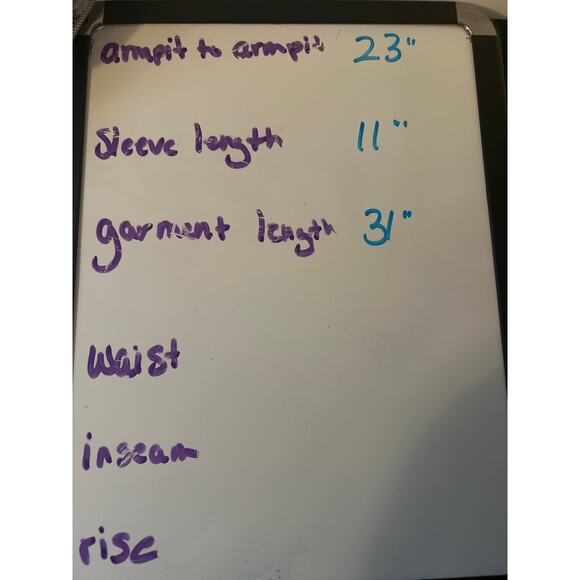 armpit to armpit 23"
Sleeve length 11"
garment length 31"
waist
inseam
rise